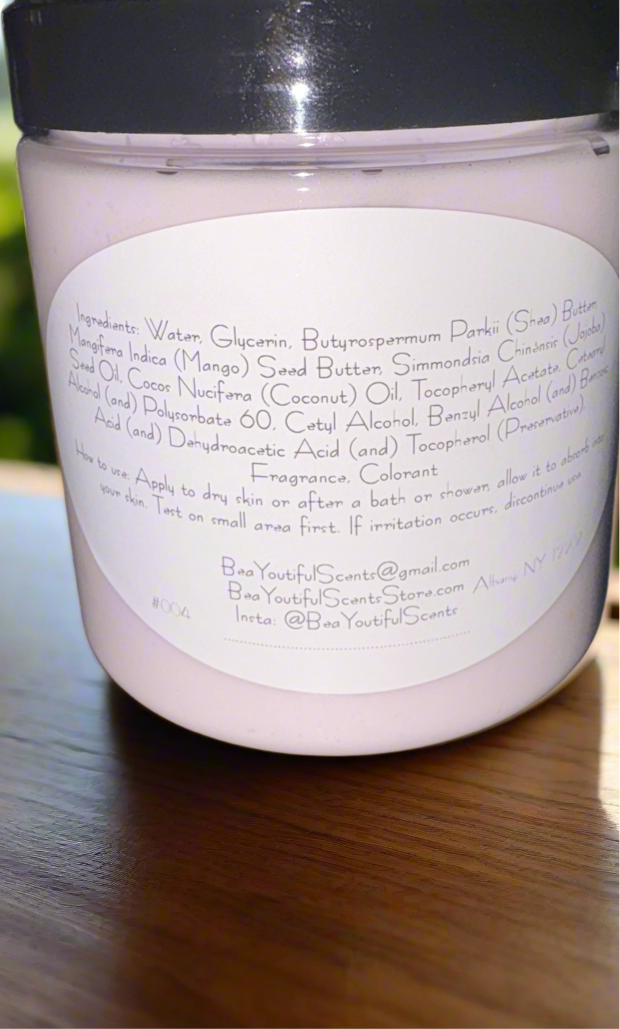 Ingredients: Water, Glycerin, Butyrospermum Parkii (Shea) Butter,
Mangifera Indica (Mango) Seed Butter, Simmondsia Chinensis (Jojoba)
Seed Oil, Cocos Nucifera (Coconut) Oil, Tocopheryl Acetate,
Alcohol (and) Polysorbate 60, Cetyl Alcohol, Benzyl Alcohol (and)
Acid (and) Dehydroacetic Acid (and) Tocopherol (Preservative),
Fragrance, Colorant
How to use: Apply to dry skin or after a bath or shower, allow it to absorb into
your skin. Test on small area first. If irritation occurs, discontinue use
BeaYoutifulScents@gmail.com
BeaYoutifulScentsStore.com Albany, NY
Insta: @BeaYoutifulScents
#004